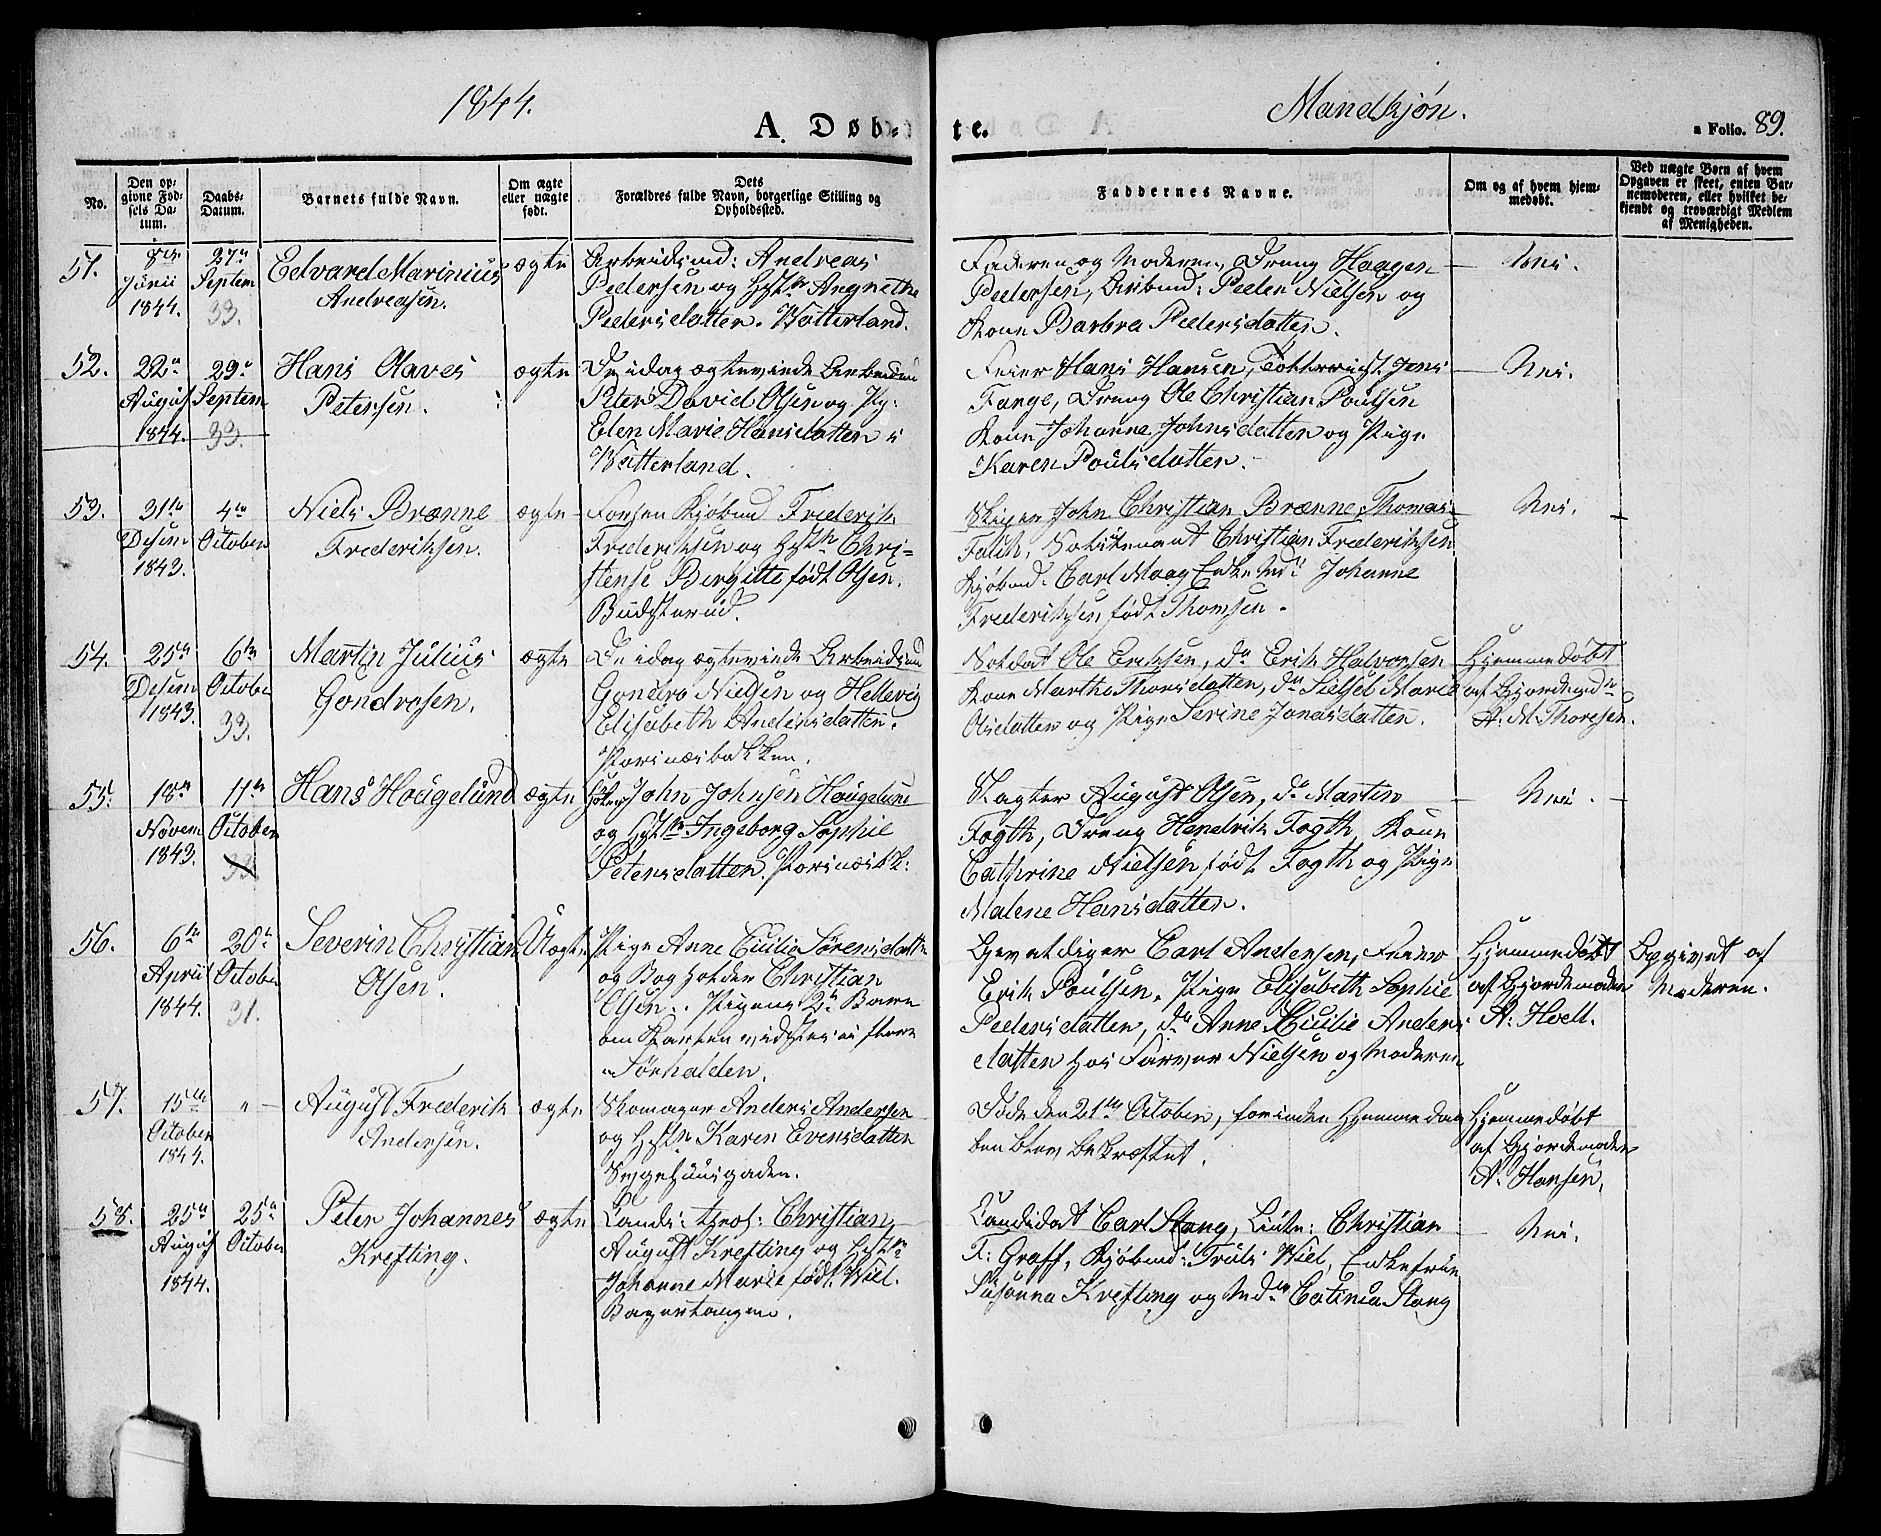 1844.
A. Døb-
te.
Mandkjøn.
a Folio. 89.
No.
Den op-
givne Fød-
sels Da-
tum.
Daabs-
Datum.
Barnets fulde Navn.
Om ægte
eller uægte
født.
Dets
Forældres fulde Navn, borgerlige Stilling og
Opholdssted.
Faddernes Navne.
Om og af hvem hjem-
medøbt.
Ved uægte Børn af hvem
Opgaven er skeet, enten Bar-
nemoderen, eller hvilket be-
kjendt og troværdigt Medlem
af Menigheden.
51.
Junii
1844.
27de
Septem
33.
Edvard Marinius
Andreasen.
ægte
Arbeidsmd: Andreas
Pedersen og Hstr Angnethe
Pedersdatter. Watterland.
Faderen og Moderen, Dreng Haagen
Pedersen, Arbmd: Peder Nielsen og
Kone Barbra Pedersdatter.
Nei.
52.
22de
August
1844.
29de
Septem
33.
Hans Olaves
Petersen.
ægte
De idag ægteviede Arbeidsmd
Peter David Olsen og Pg:
Elen Marie Hansdatter i
Watterland.
Feier Hans Hansen, Jens
Fange, Dreng Ole Christian Poulsen
Kone Johanne Johnsdatter og Pige
Karen Poulsdatter.
Nei.
53.
31te
Desem
1843.
4de
October
Niels Brænne
Frederiksen.
ægte
Kjøbmd Frederik
Frederiksen og Hstr Chri-
stense Birgitte født Olsen.
Budsterud.
Skipper John Christian Brænne, Thomas
Falch, Christian Frederiksen
Kjøbmd: Carl Maag Enke Md: Johanne
Frederiksen født Thomsen.
Nei.
54.
25de
Desem
1843.
6te
October
33.
Martin Julius
Gondrosen.
ægte
De idag ægteviede Arbeidsmd
Gondro Nielsen og Hellevig
Elisabeth Andersdatter.
Porsnæsbakken.
Soldat Ole Eriksen, do Erik Halvorsen
Kone Marthe Thorsdatter, do Sielsel Marie
Olsdatter og Pige Serine Jonasdatter.
Hjemmedøbt
af Gjordemdr
A. M. Thoresen.
55.
18de
Novem
1843.
11te
October
33
Hans Hougelund
ægte
Høker John Johnsen Hougelund
og Hstr Ingeborg Sophie
Petersdatter. Porsnæsbk:
Slagter August Olsen, do Martin
Fogth, Dreng Hendrik Fogth, Kone
Cathrine Nielsen født Fogth og Pige
Malene Hansdatter.
Nei.
56.
6te
April
1844.
20de
October
31.
Severin Christian
Olsen.
Uægte
Pige Anne Cicilia Sørensdatter
og Bogholder Christian
Olsen. Pigens 2det Barn
om Karlen vidstes ei større
Forholden.
Gevaldiger Carl Andersen, Feier
Erik Poulsen, Pige Elisabeth Sophie
Pedersdatter, do Anne Cicilie Anders-
datter hos Farver Nielsen og Moderen
Hjemmedøbt
af Gjordemoder
A. Hvell.
Opgivet af
Moderen.
57.
15de
October
1844.
"
August Frederik
Andersen.
ægte
Skomager Anders Andersen
og Hstr Karen Evensdatter
Sygehuusgaden.
Døde den 21de October, forinden Hjemmedaa-
ben blev bekræftet.
Hjemmedøbt
af Gjordemoder
A. Hansen.
58.
25de
August
1844.
25de
October
Peter Johannes
Krefting.
ægte
Cand: theol: Christian
August Krefting og Hstr
Johanne Marie født Wiel.
Bagertangen.
Candidat Carl Stang, Lieute: Christian
F: Graff, Kjøbmd: Truls Wiel, Enkefrue
Susanna Krefting og Mdm Catinca Stang
Nei.